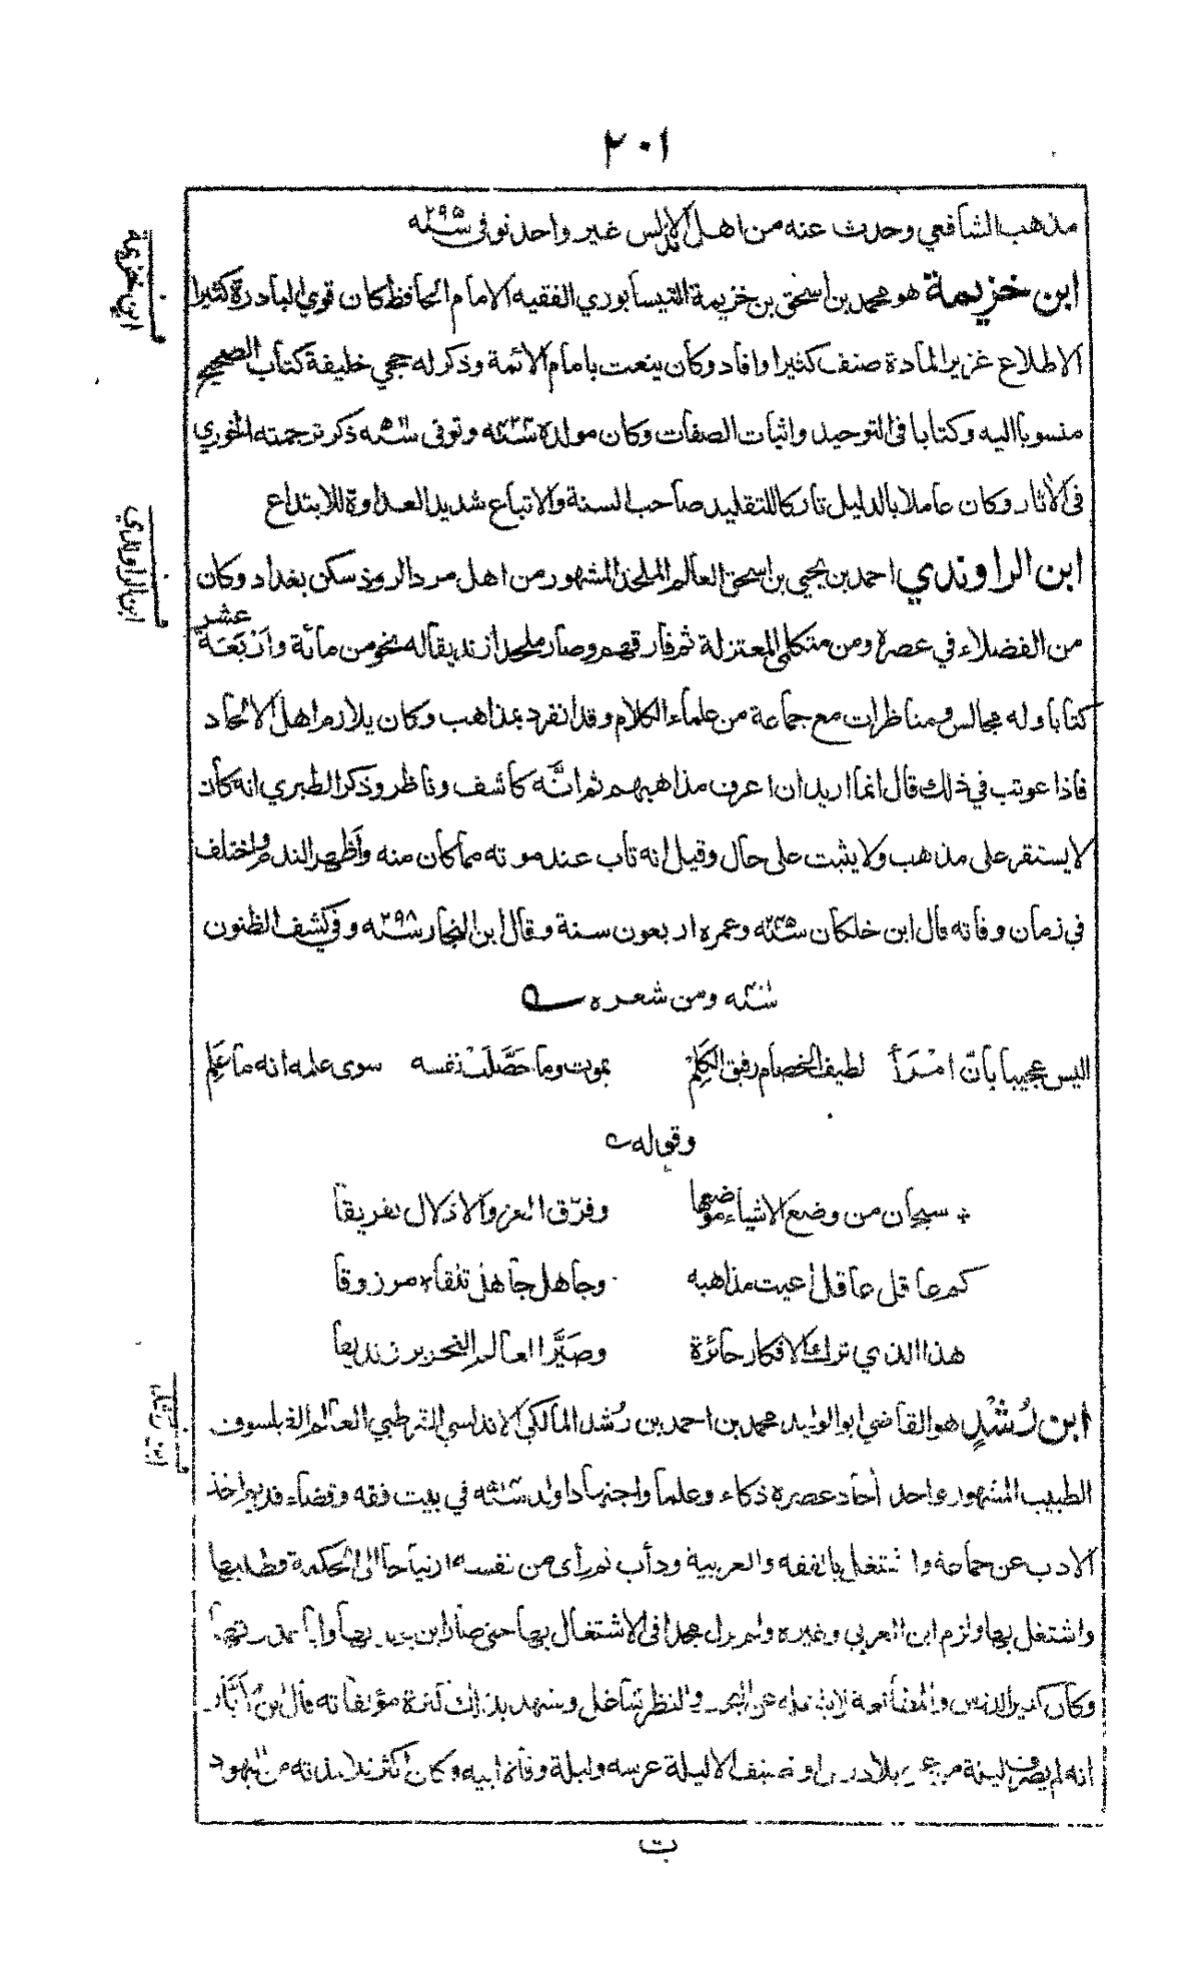 ٢٠١
مذهب الشافعي وحدث عنه من اهل الاندلس غير واحد توفى سنه ٢٩٥
ابن خزيمة
ابن خزيمة هو محمد بن اسحق بن خزيمة النيسابوري الفقيه الامام الحافظ كان قوي البادرة كثيرا
الاطلاع غزير المادة صنف كثيرا وافاد وكان ينعت بامام الائمة وذكر له حجي خليفة كتاب الصحيح
منسوبا اليه وكتابا فى التوحيد واثبات الصفات وكان مولده سنه وتوفى سنه ذكر ترجمته الخوري
فى الآثار وكان عاملا بالدليل تاركا للتقليد صاحب السنة والاتباع شديد العداوة للابتداع
ابن الراوندي
ابن الراوندي احمد بن يحيى بن اسحق العالم الملحد المشهور من اهل مرد الروذ سكن بغداد وكان
من الفضلاء في عصره ومن متكلمى المعتزلة ثم فارقهم وصار ملحدا زنديقا له نحو من مائة وأرْبَعَةَ عشر
كتابا وله مجالس ومناظرات مع جماعة من علماء الكلام وقد انفرد بمذاهب وكان يلازم اهل الالحاد
فاذا عوتب في ذلك قال انما اريد ان اعرف مذاهبهم ثم انَّه كاشف وناظر وذكر الطبري انه كان
لا يستقر على مذهب ولا يثبت على حال وقيل انه تاب عند موته مما كان منه وأظهر الندم واختلف
في زمان وفاته قال ابن خلكان سنه ٢٤٥ وعمره اربعون سنة وقال ابن النجار سنه ٢٩٨ وفي كشف الظنون
سنه ٣٠١ ومن شعره
اليس عجيبا بأن امْرَأً لطيف الخصام رقيق الكَلِمْ يموت وما حَصَّلَتْ نفسه سوى علمه انه ما عَلِم
وقوله
سبحان من وضع الاشياء موضعها وفرّق العز والاذلال تفريقا
كم عاقل عاقل اعيت مذاهبه وجاهل جاهل تلقاه مرزوقا
هذا الذي ترك الافكار حائرة وصَيَّر العالم النحرير زنديقا
ابن رشد
ابن رُشْدٍ هو القاضي ابو الوليد محمد بن احمد بن رُشد المالكي الاندلسي القرطبي العالم الفيلسوف
الطبيب المشهور واحد أحاد عصره ذكاء وعلما واجتهادا ولد سنه في بيت فقه وقضاء قديم اخذ
الادب عن جماعة واشتغل بالفقه والعربية ودأب ثم رأى من نفسه ارتياحا الى الحكمة وطلبها
واشتغل بها ولزم ابن العربي وغيره ولم يزل مجدا فى الاشتغال بها حتى صار ابن
وكان كثير الدرس والمطالعة عن و النظر شاغل وشهد بذلك كثرة مؤلفاته قال ابن أبّار
انه لم يصرف ليلة من بلا درس او تصنيف الا ليلة عرسه وليلة وفاة ابيه وكان اكثر تلامذته من اليهود
ت